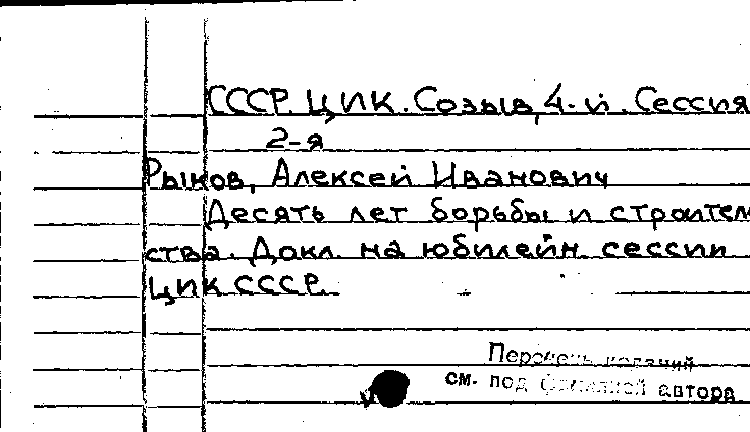 СССР. ЦИК. Созыв, 4-й. Сессия
2-я
Рыков, Алексей Иванович
Десять лет борьбы и строитель
ства. Докл. на юбилейн. сессии
ЦИК СССР.
Перечень изданий
см. под фамилией автора